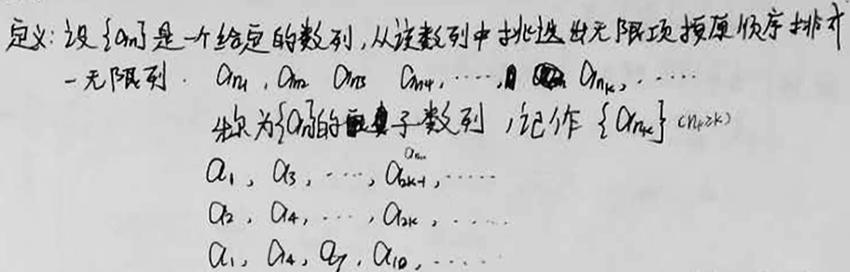 定义:设{an}是一个给定的数列,从该数列中挑选出无限项按原顺序排成
一无限列. an1, an2 an3 an4, ……, ank, ……
称为{an}的子数列,记作{ank} (nk≥k)
a1, a3, …, a2k-1, ……
a2, a4, …, a2k, ……
a1, a4, a7, a10, ……